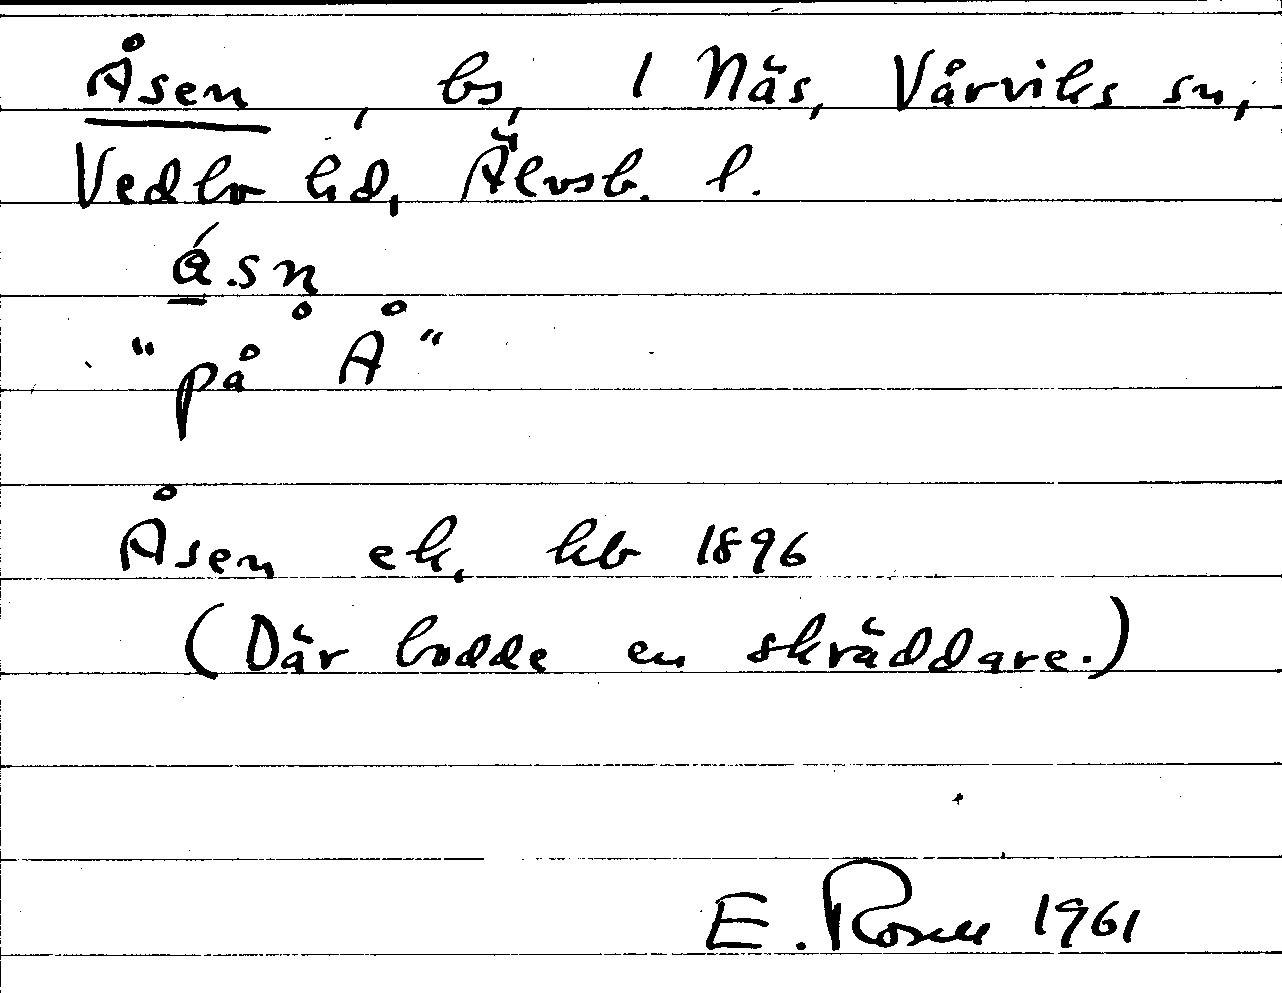 Åsen, bs, 1 Näs, Vårviks sn,
Vedbo hd, Älvsb. l.
ásn̥
"på Å"
Åsen eh, hb 1896
(Där bodde en skräddare.)
E. Rosell 1961